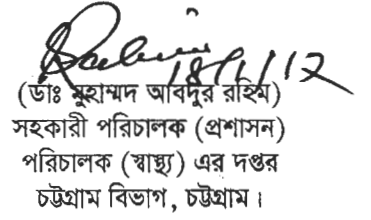 18/1/12
(ডাঃ মুহাম্মদ আবদুর রহিম)
সহকারী পরিচালক (প্রশাসন)
পরিচালক (স্বাস্থ্য) এর দপ্তর
চট্টগ্রাম বিভাগ, চট্টগ্রাম।